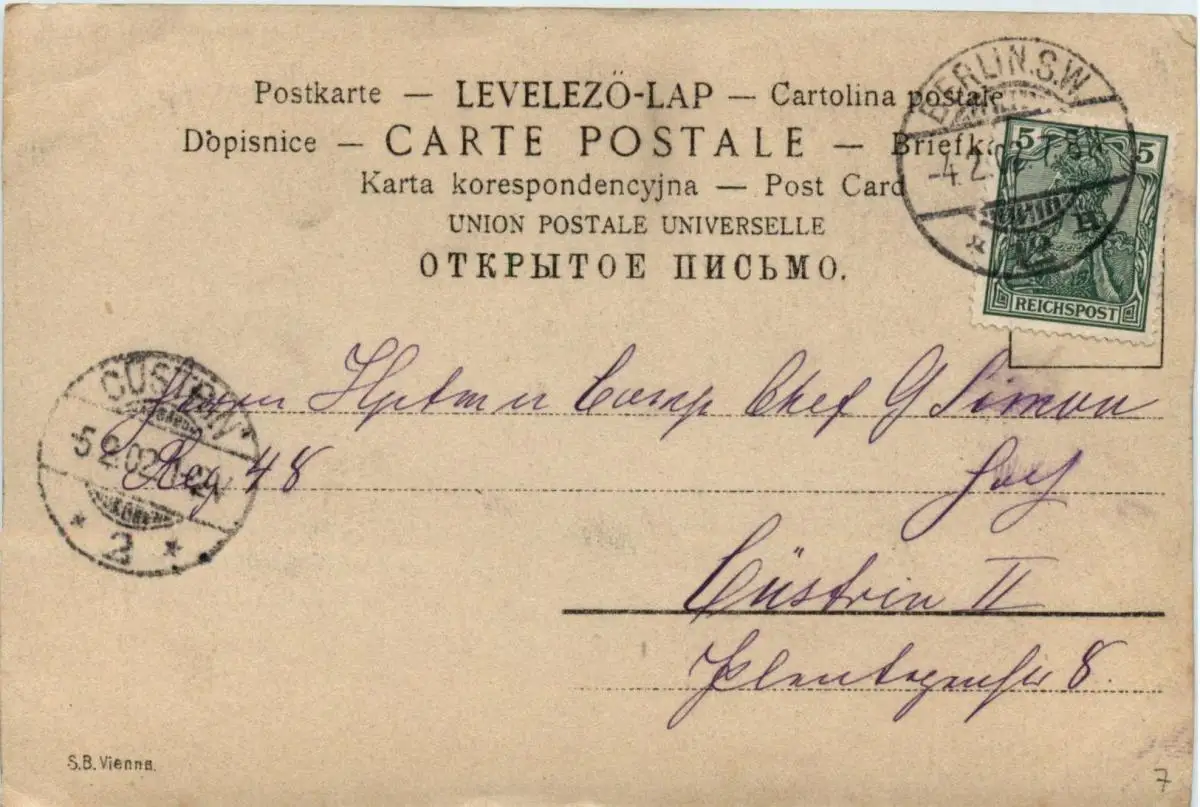 Postkarte — LEVELEZŐ-LAP — Cartolina postale
Dopisnice — CARTE POSTALE — Briefka
Karta korespondencyjna — Post Card
UNION POSTALE UNIVERSELLE
ОТКРЫТОЕ ПИСЬМО.
BERLIN.S.W.
-4.2.02.7-8N
* 12 n
5 5
REICHSPOST
CÜSTRIN
5 2.02.1-2N
* 2 *
Herrn Hptm u Comp Chef G Simon
Reg 48
Cüstrin II
8.
S.B.Vienna.
7